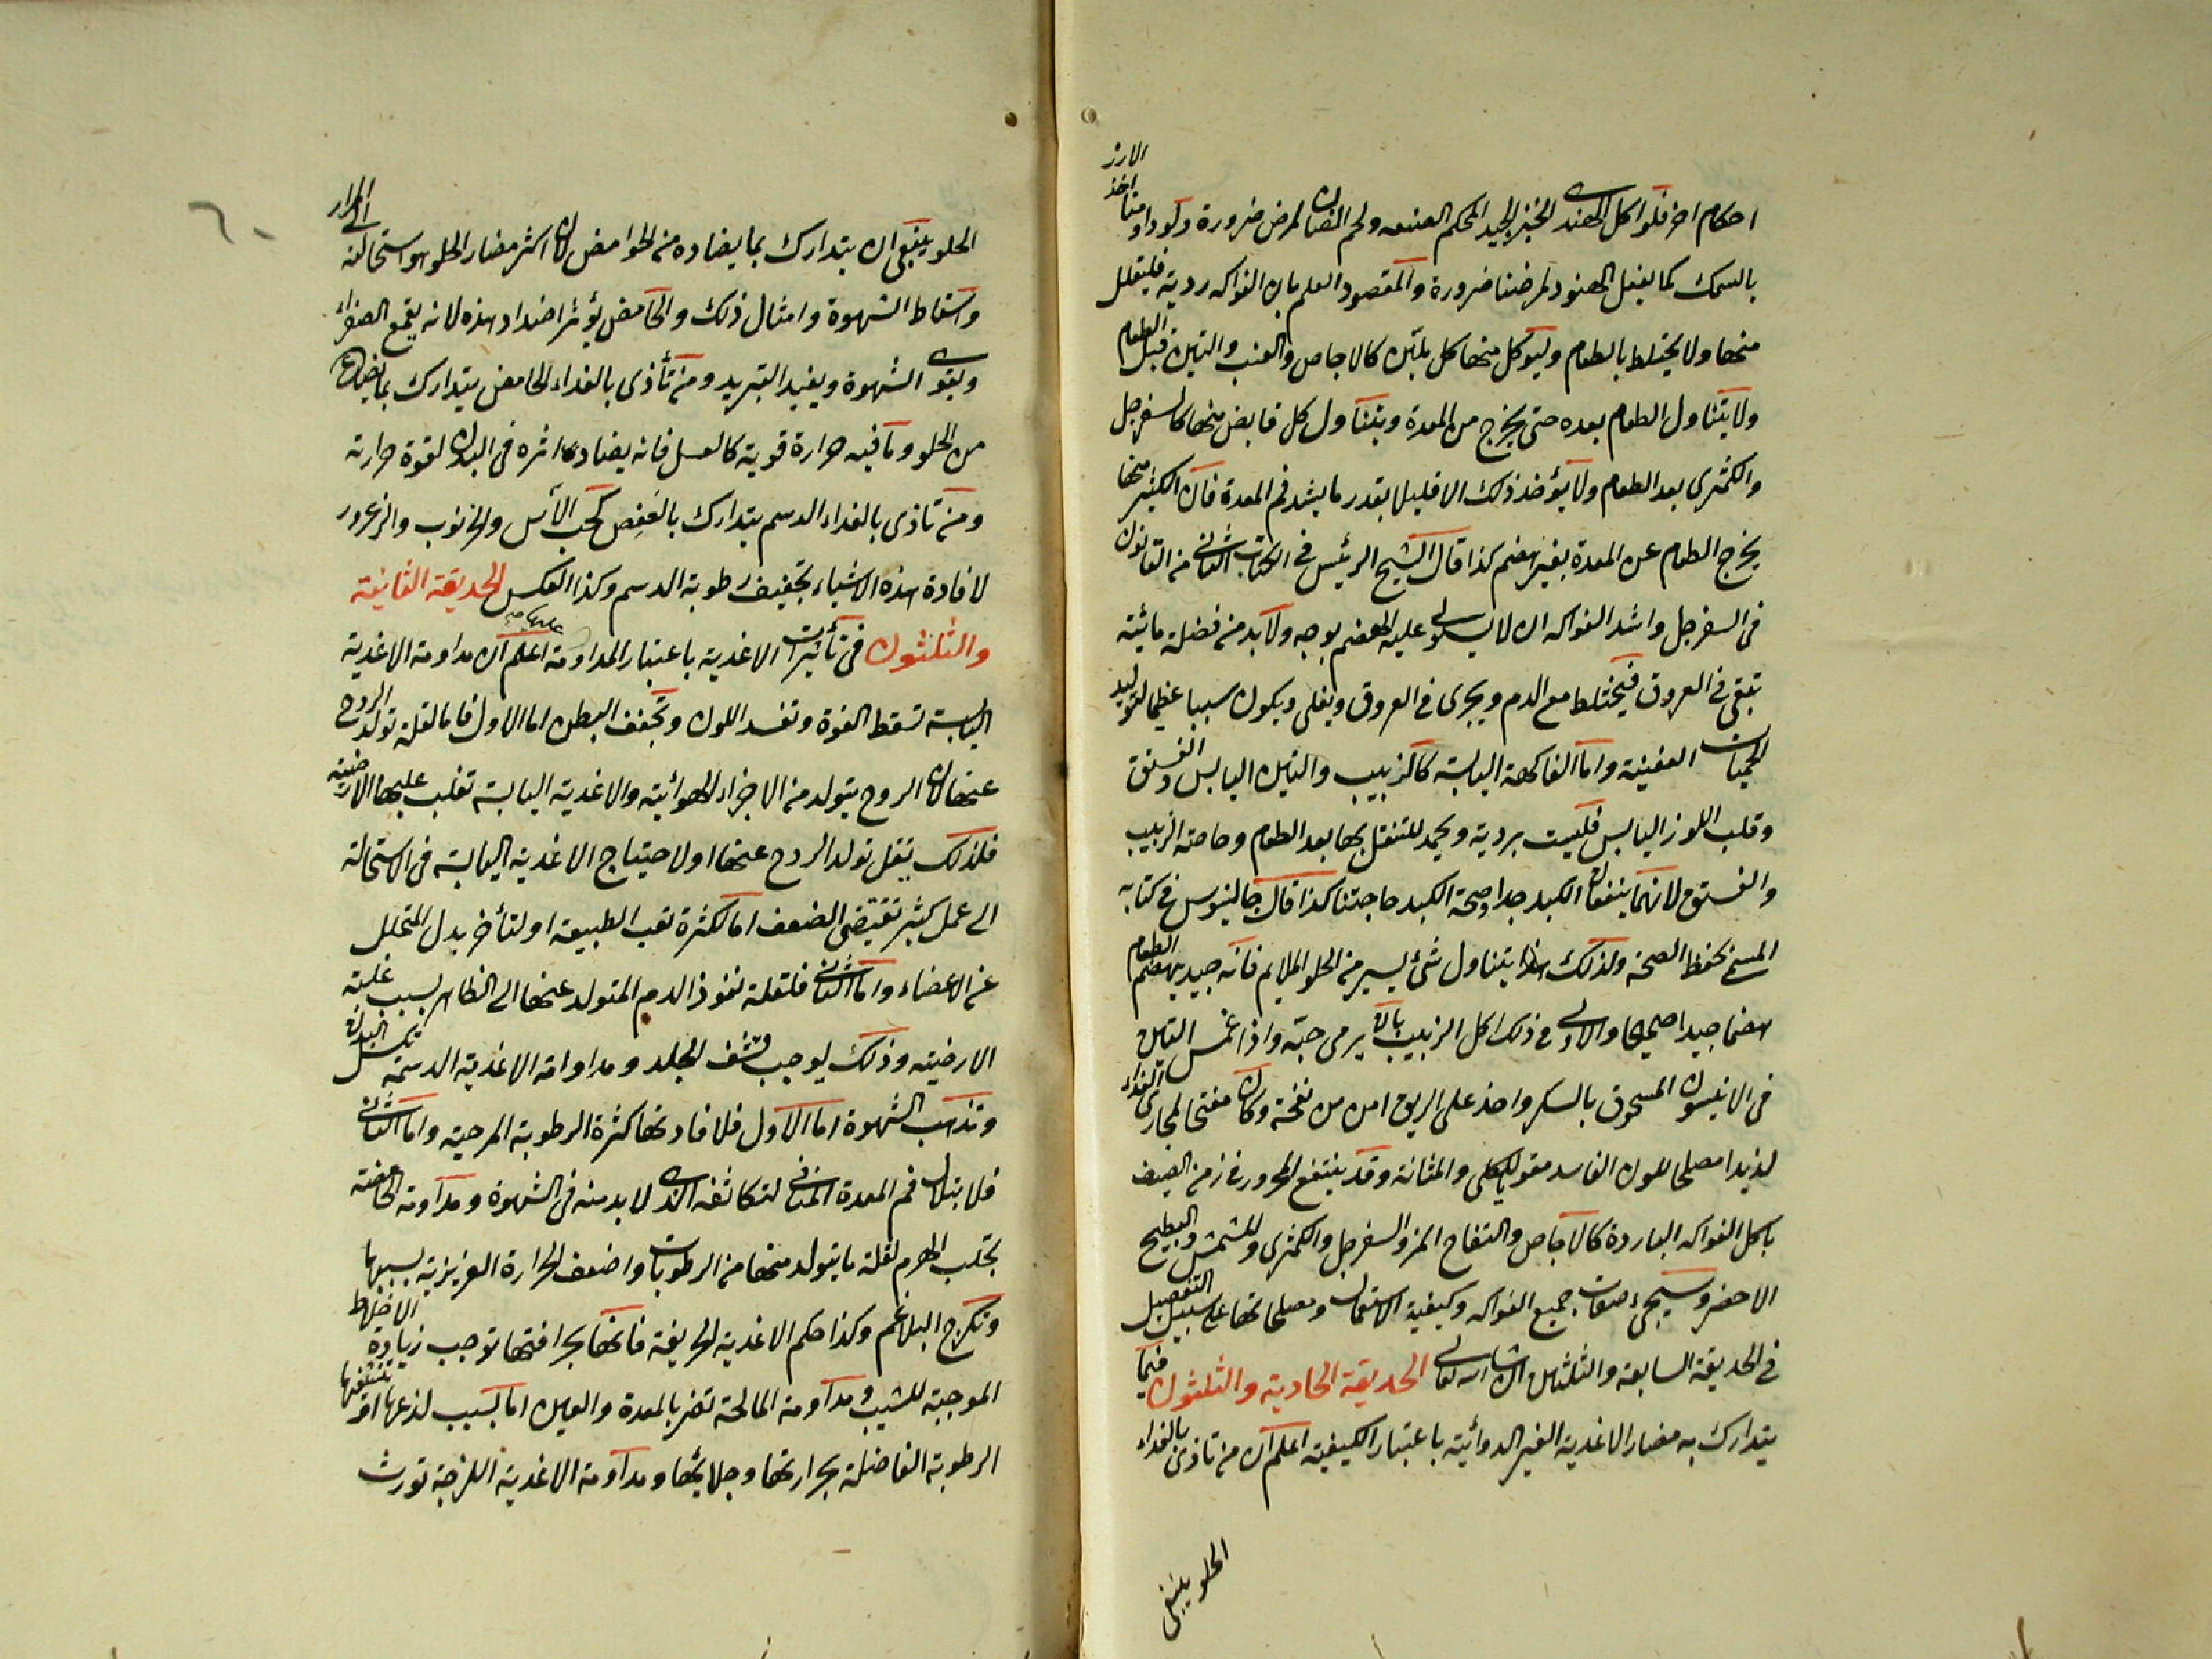 احكام اخر فلو اكل الهندى الخبز الجيد المحكم الصنعه ولحم الضان لمرض ضرورة ولو داومنا اخذ الارز
بالسمك كما يفعل الهنود لمرضنا ضرورة والمقصود العلم بان الفواكه ردية فليقلل
منها ولا يختلط بالطعام وليؤكل منها كل ملين كالاجاص والعنب والتين قبل الطعام
ولا يتناول الطعام بعده حتى يخرج من المعدة ويتناول كل قابض منها كالسفرجل
والكمثرى بعد الطعام ولا يؤخذ ذلك الا قليلا بقدر ما يشد فم المعدة فان الكثير منها
يخرج الطعام عن المعدة بغير هضم كذا قال الشيخ الرئيس فى الكتاب الثانى من القانون
فى السفرجل واشد الفواكه ان لا يستولى عليه الهضم بوجه ولا بد من فضلة مائية
تبقى فى العروق فيختلط مع الدم ويجرى فى العروق ويغلى ويكون سببا عظيما لتوليد
الحميات العفينة واما الفاكهة اليابسة كالزبيب والتين اليابس والفستق
وقلب اللوز اليابس فليست بردية ويحمد للتنقل بها بعد الطعام وخاصة الزبيب
والفستق لانهما ينفعان الكبد جدا وصحة الكبد حاجتنا كذا قال جالينوس فى كتابه
المسمى بحفظ الصحة ولذلك اذا يتناول شئ يسير من الحلو الملايم فانه جيد يهضم الطعام
هضما جيدا صحيحا والاولى فى ذلك اكل الزبيب بان يرمى حبه واذا غمس التين
فى الانيسون المسحوق بالسكر واخذ على الريق امن من نفخه وكان مفتحا لمجارى الغذاء
لذيذا مصلحا للون الفاسد مقويا للكلى والمثانة وقد ينتفع المحرور فى زمن الصيف
باكل الفواكه الباردة كالاجاص والتفاح المز والسفرجل والكمثرى والمشمش والبطيخ
الاخضر وسيجئ صفات جميع الفواكه وكيفية استعمالها ومصلحاتها على سبيل التفصيل
فى الحديقة السابعة والثلثين ان شاء الله تعالى الحديقة الحادية والثلثون فيما
يتدارك به مضار الاغذية الغير الدوائية باعتبار الكيفية اعلم ان من تاذى بالغذاء
الحلو ينبغى
الحلو ينبغى ان يتدارك بما يضاده من الحوامض لان اكثر مضار الحلو هو استحالته الى المرار
واسقاط الشهوة وامثال ذلك والحامض يؤثر اضداد هذه لانه يقمع الصفراء
ويقوى الشهوة ويفيد التبريد ومن تأذى بالغذاء الحامض يتدارك بما يضاده
من الحلو وما فيه حرارة قوية كالعسل فانه يضاد اثره فى البدن لقوة حرارته
ومن تاذى بالغذاء الدسم يتدارك بالعفص كحب الآس والخرنوب والزعرور
لافادة هذه الاشياء تجفيف رطوبة الدسم وكذا العكس الحديقة الثانية
والثلثون فى تأثيرات الاغذية باعتبار المداومة عليها اعلم ان مداومة الاغذية
اليابسة تسقط القوة وتفسد اللون وتجفف البطن اما الاول فاما لقلة تولد الروح
عنها لان الروح يتولد من الاجزاء الهوائية والاغذية اليابسة تغلب عليها الارضية
فلذلك يقل تولد الروح عنها او لاحتياج الاغذية اليابسة فى الاستحالة
الى عمل كثير تقتضى الضعف اما لكثرة تعب الطبيعة او لتأخر بدل المتحلل
عن الاعضاء واما الثانى فلقلة نفوذ الدم المتولد عنها الى الظاهر بسبب غلبة
الارضية وذلك يوجب قشف الجلد ومداومة الاغذية الدسمة تكسل البدن
وتذهب الشهوة اما الاول فلافادتها كثرة الرطوبة المرخية واما الثانى
فلابتلال فم المعدة المنافى لتكاثفه الذى لا بد منه فى الشهوة ومداومة الحامضة
تجلب الهرم لقلة ما يتولد منها من الرطوبات واضعف الحرارة الغريزية بسببها
البلاغم وكذا حكم الاغذية الحريفة فانها بحرافتها توجب زيادة الاخلاط
الموجبة للشيب ومداومة المالحة تضر بالمعدة والعين اما بسبب لذعها او تنشفها
الرطوبة الفاضلة بحرارتها وجلائها ومداومة الاغذية اللزجة تورث